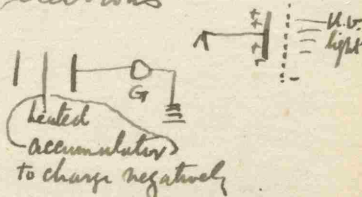 electrons
u.v.
light
G
heated
accumulator
to charge negatively